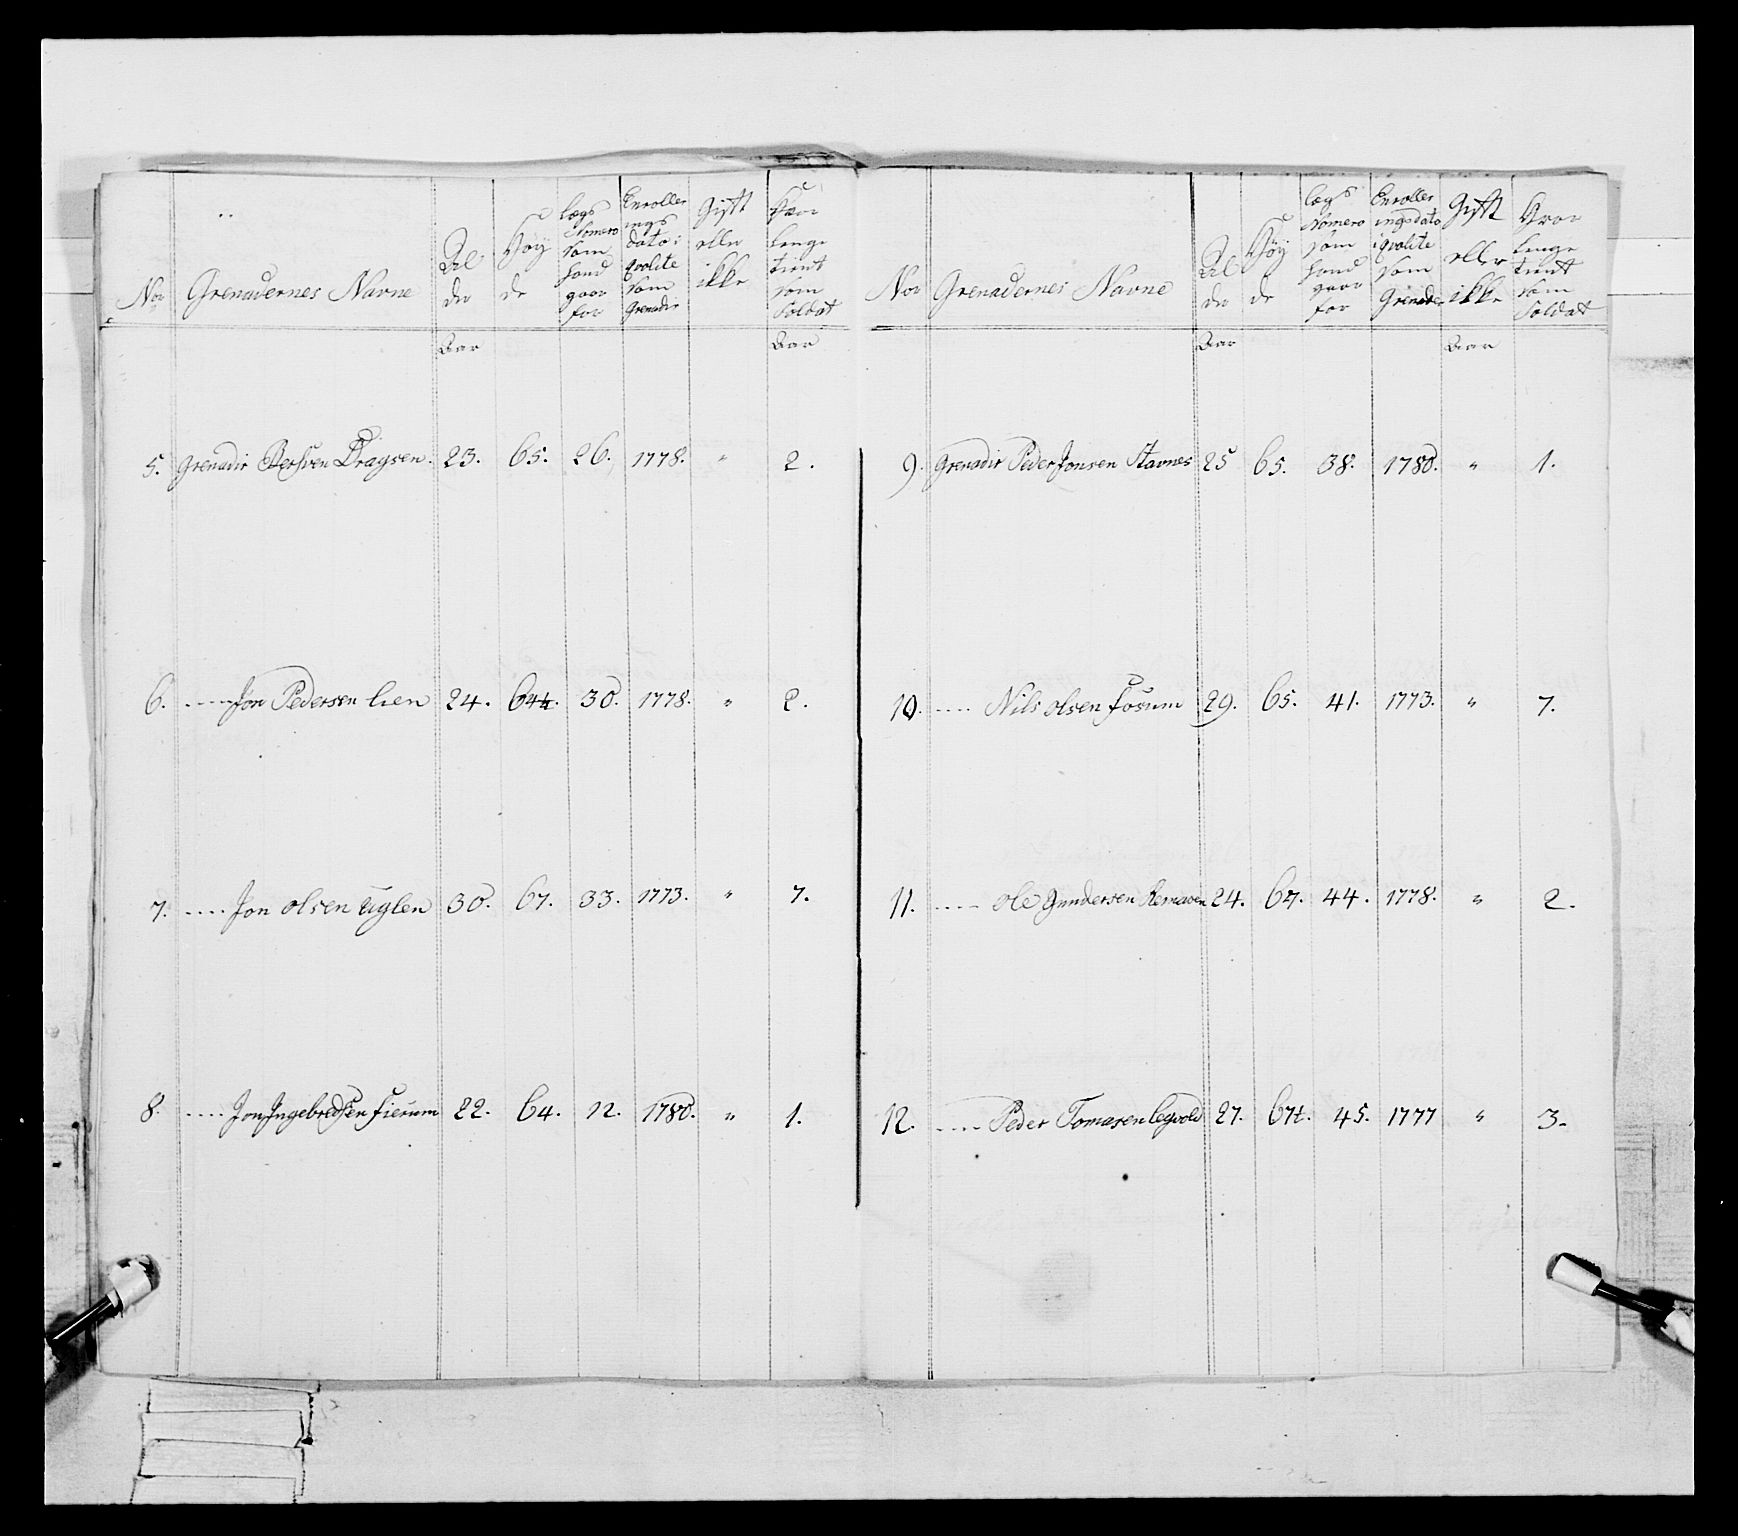 No Grenadernes Navne Alder Høyde Lægs Nomero som hand gaar for Enrolleringsdato i qvalite som Grenadir Gift eller ikke Hvor lenge tient som Soldat
Aar Aar
5. Grenadir Bersven Dragsen. 23. 65. 26. 1778. " 2.
6. ---- Jon Pedersen Lien 24. 64½. 30. 1778. " 2.
7. ---- Jon Olsen Uglen 30. 67. 33. 1773. " 7.
8. ---- Jon Ingebredsen Fierum 22. 64. 12. 1780. " 1.
No Grenadernes Navne Alder Høyde Lægs Nomero som hand gaar for Enrolleringsdato i qvalite som Grenader Gift eller ikke Hvor lenge tient som Soldat
Aar Aar
9. Grenadir Peder Jonsen Stavnes 25 65. 38. 1780. " 1.
10. ---- Nils Olsen Fosum 29. 65. 41. 1773. " 7.
11. ---- Ole Gundersen 24. 67. 44. 1778. " 2.
12. ---- Peder Tomasen Legvold 27. 45. 1777 " 3.